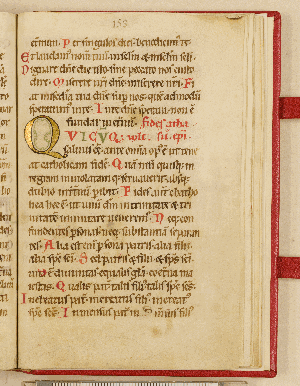 159
eternum. Per singulos dies benedicimus te.
Et laudamus nomen tuum in seculum et in seculum seculi.
Dignare domine die isto sine peccato nos custo
dire. Miserere nostri domine miserere nostri. Fi
at misericordia tua domine super nos quemadmodum
speravimus in te. In te domine speravi non
Fides atha
QVICVQ; vult
salvus esse ante omnia opus est ut tene
at catholicam fidem. Quam nisi quisque in
tegram inviolatamque servaverit absque
dubio in eternum peribit. Fides autem catho
hec est ut unum deum in trinitate et tri
nitatem in unitate veneremur. Neque con
fundentes personas neque substantiam separan
tes. Alia est enim persona patris alia filii
alia spiritus sancti. Sed patris et filii et spiritus sancti
una est divinitas equalis gloria coeterna ma
iestas. Qualis pater talis filius talis spiritus sanctus.
Increatus pater increatus filius increatus
spiritus sanctus. Immensus pater immensus filius